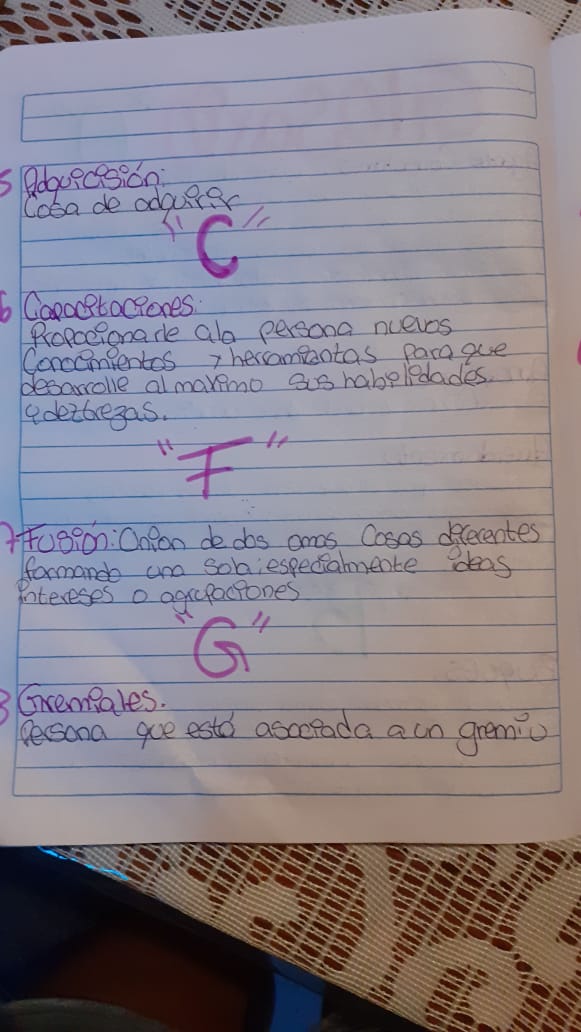 5 Adquicisión:
Cosa de adquirir
"C"
6 Capacitaciones:
Propocionarle ala persona nuevos
Conocimientos y herramientas para que
desarrolle al maximo sus habilidades
e deztrezas.
"F"
7 Fusión: Unión de dos o mas Cosas diferentes
formando una sola; especialmente ideas
intereses o agrupaciones
"G"
8 Gremiales.
Persona que está asociada a un gremio